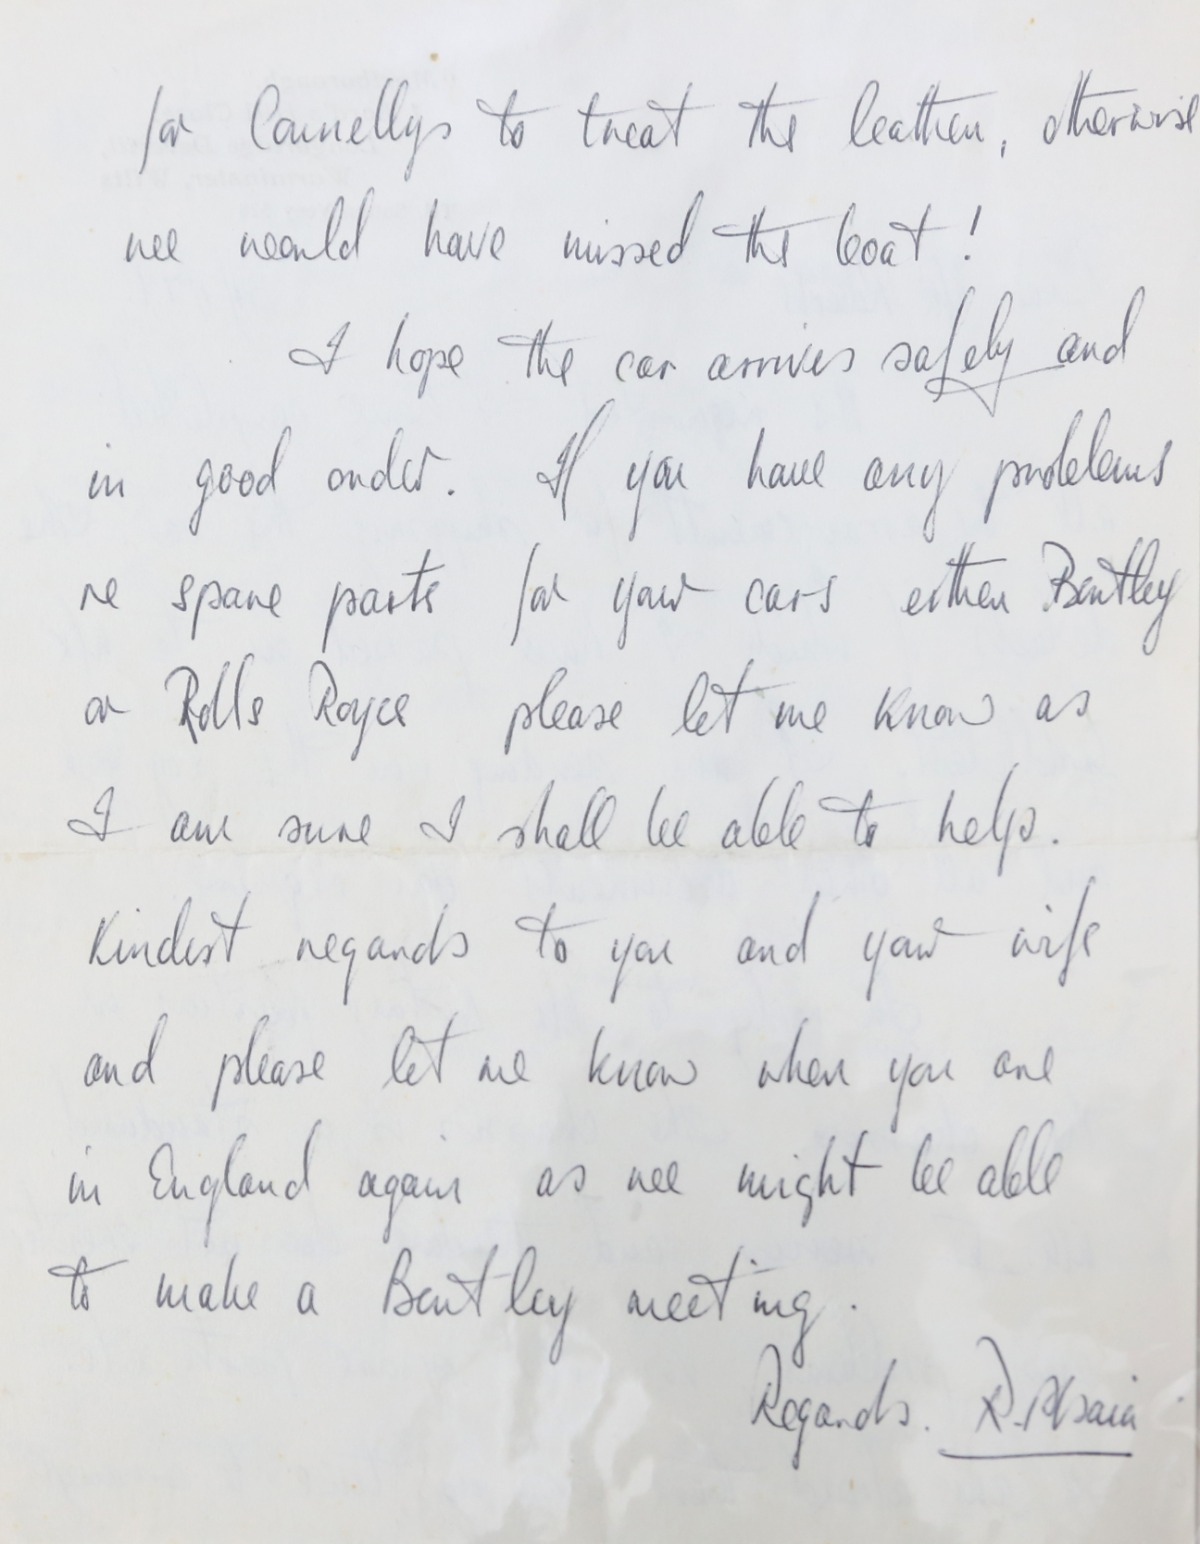 for Connellys to treat the leather, otherwise
we would have missed the boat!
I hope the car arrives safely and
in good order. If you have any problems
re spare parts for your cars either Bentley
or Rolls Royce please let me know as
I am sure I shall be able to help.
Kindest regards to you and your wife
and please let me know when you are
in England again as we might be able
to make a Bentley meeting.
Regards. R.